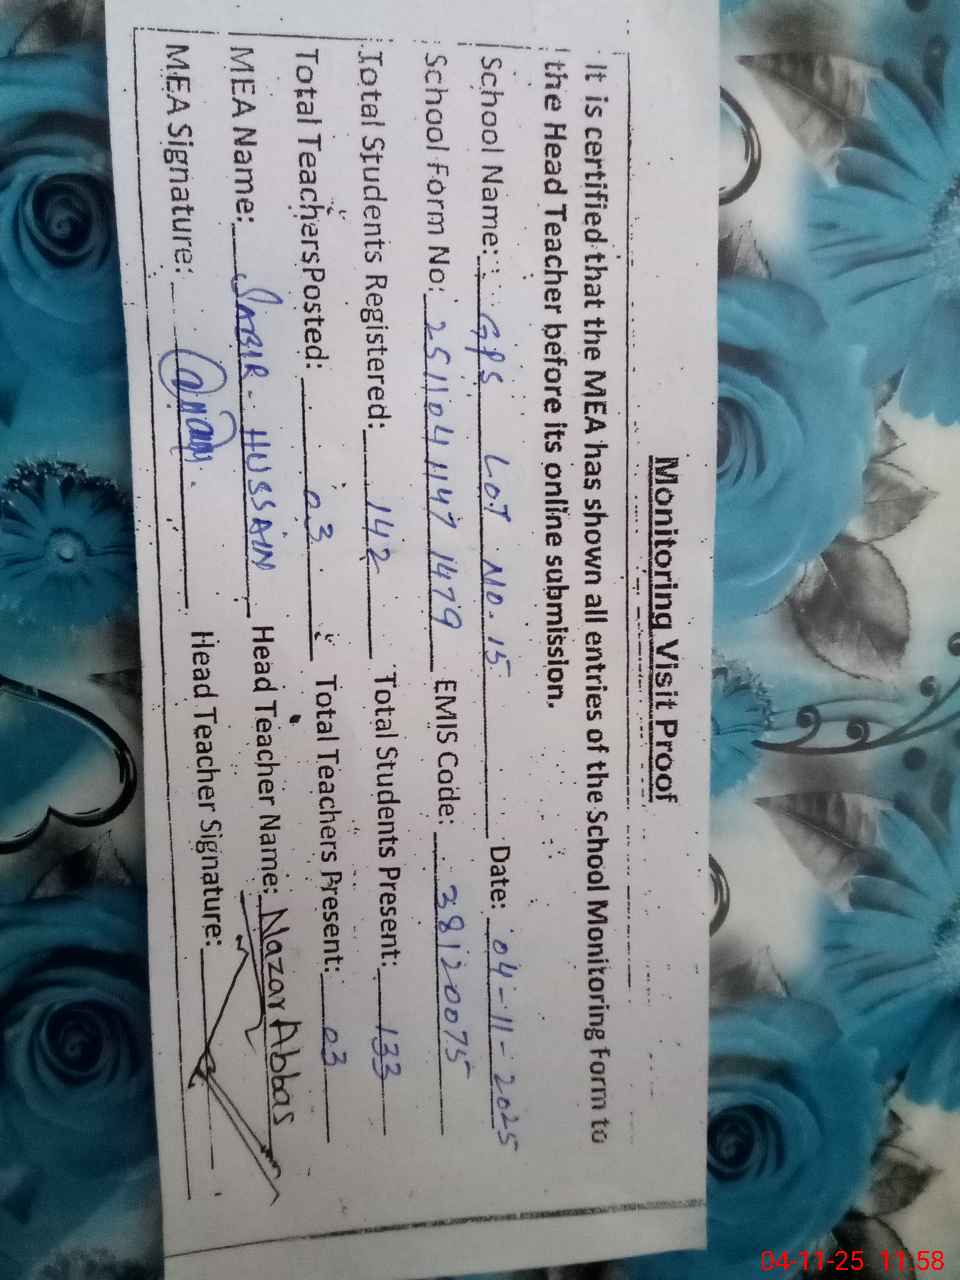 Monitoring Visit Proof
It is certified that the MEA has shown all entries of the School Monitoring Form to
the Head Teacher before its online submission.
School Name: GPS LOT NO. 15 Date: 04-11-2025
School Form No: 2511041147 1479 EMIS Code: 38120075
Total Students Registered: 142 Total Students Present: 133
Total Teachers Posted: 03 Total Teachers Present: 03
MEA Name: SABIR - HUSSAIN Head Teacher Name: Nazar Abbas
MEA Signature: Head Teacher Signature:
04-11-25 11:58